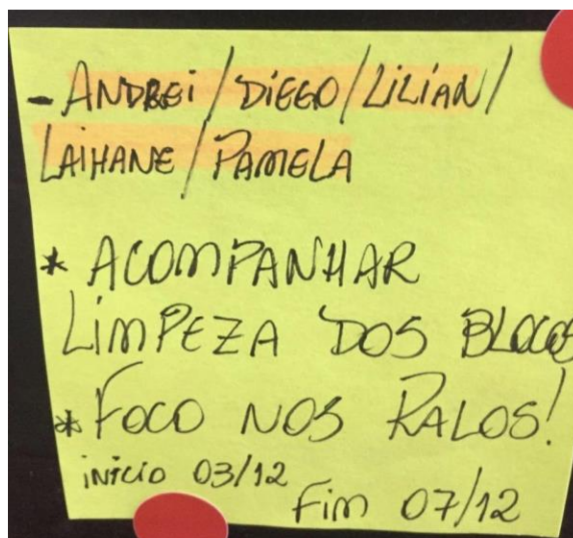 - ANDREI/DIEGO/LILIAN/
LAIHANE/PAMELA
* ACOMPANHAR
LIMPEZA DOS BLOCOS
* FOCO NOS RALOS!
INÍCIO 03/12
FIM 07/12